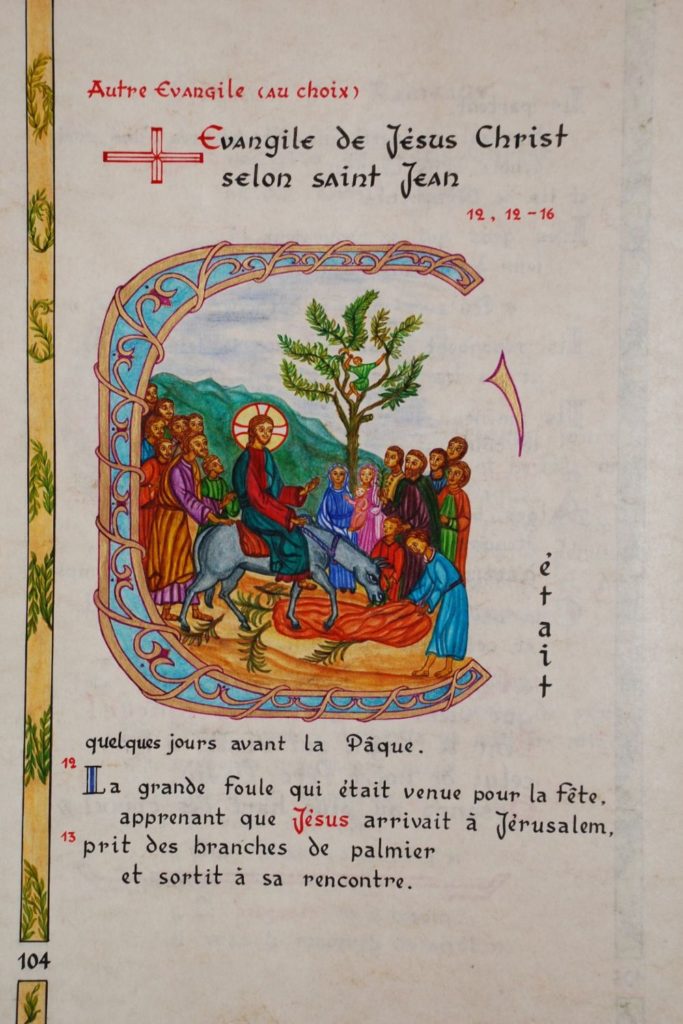 Autre Evangile (au choix)
Evangile de Jésus Christ
selon saint Jean
12, 12-16
C'
était
quelques jours avant la Pâque.
12
La grande foule qui était venue pour la fête,
apprenant que Jésus arrivait à Jérusalem,
13
prit des branches de palmier
et sortit à sa rencontre.
104